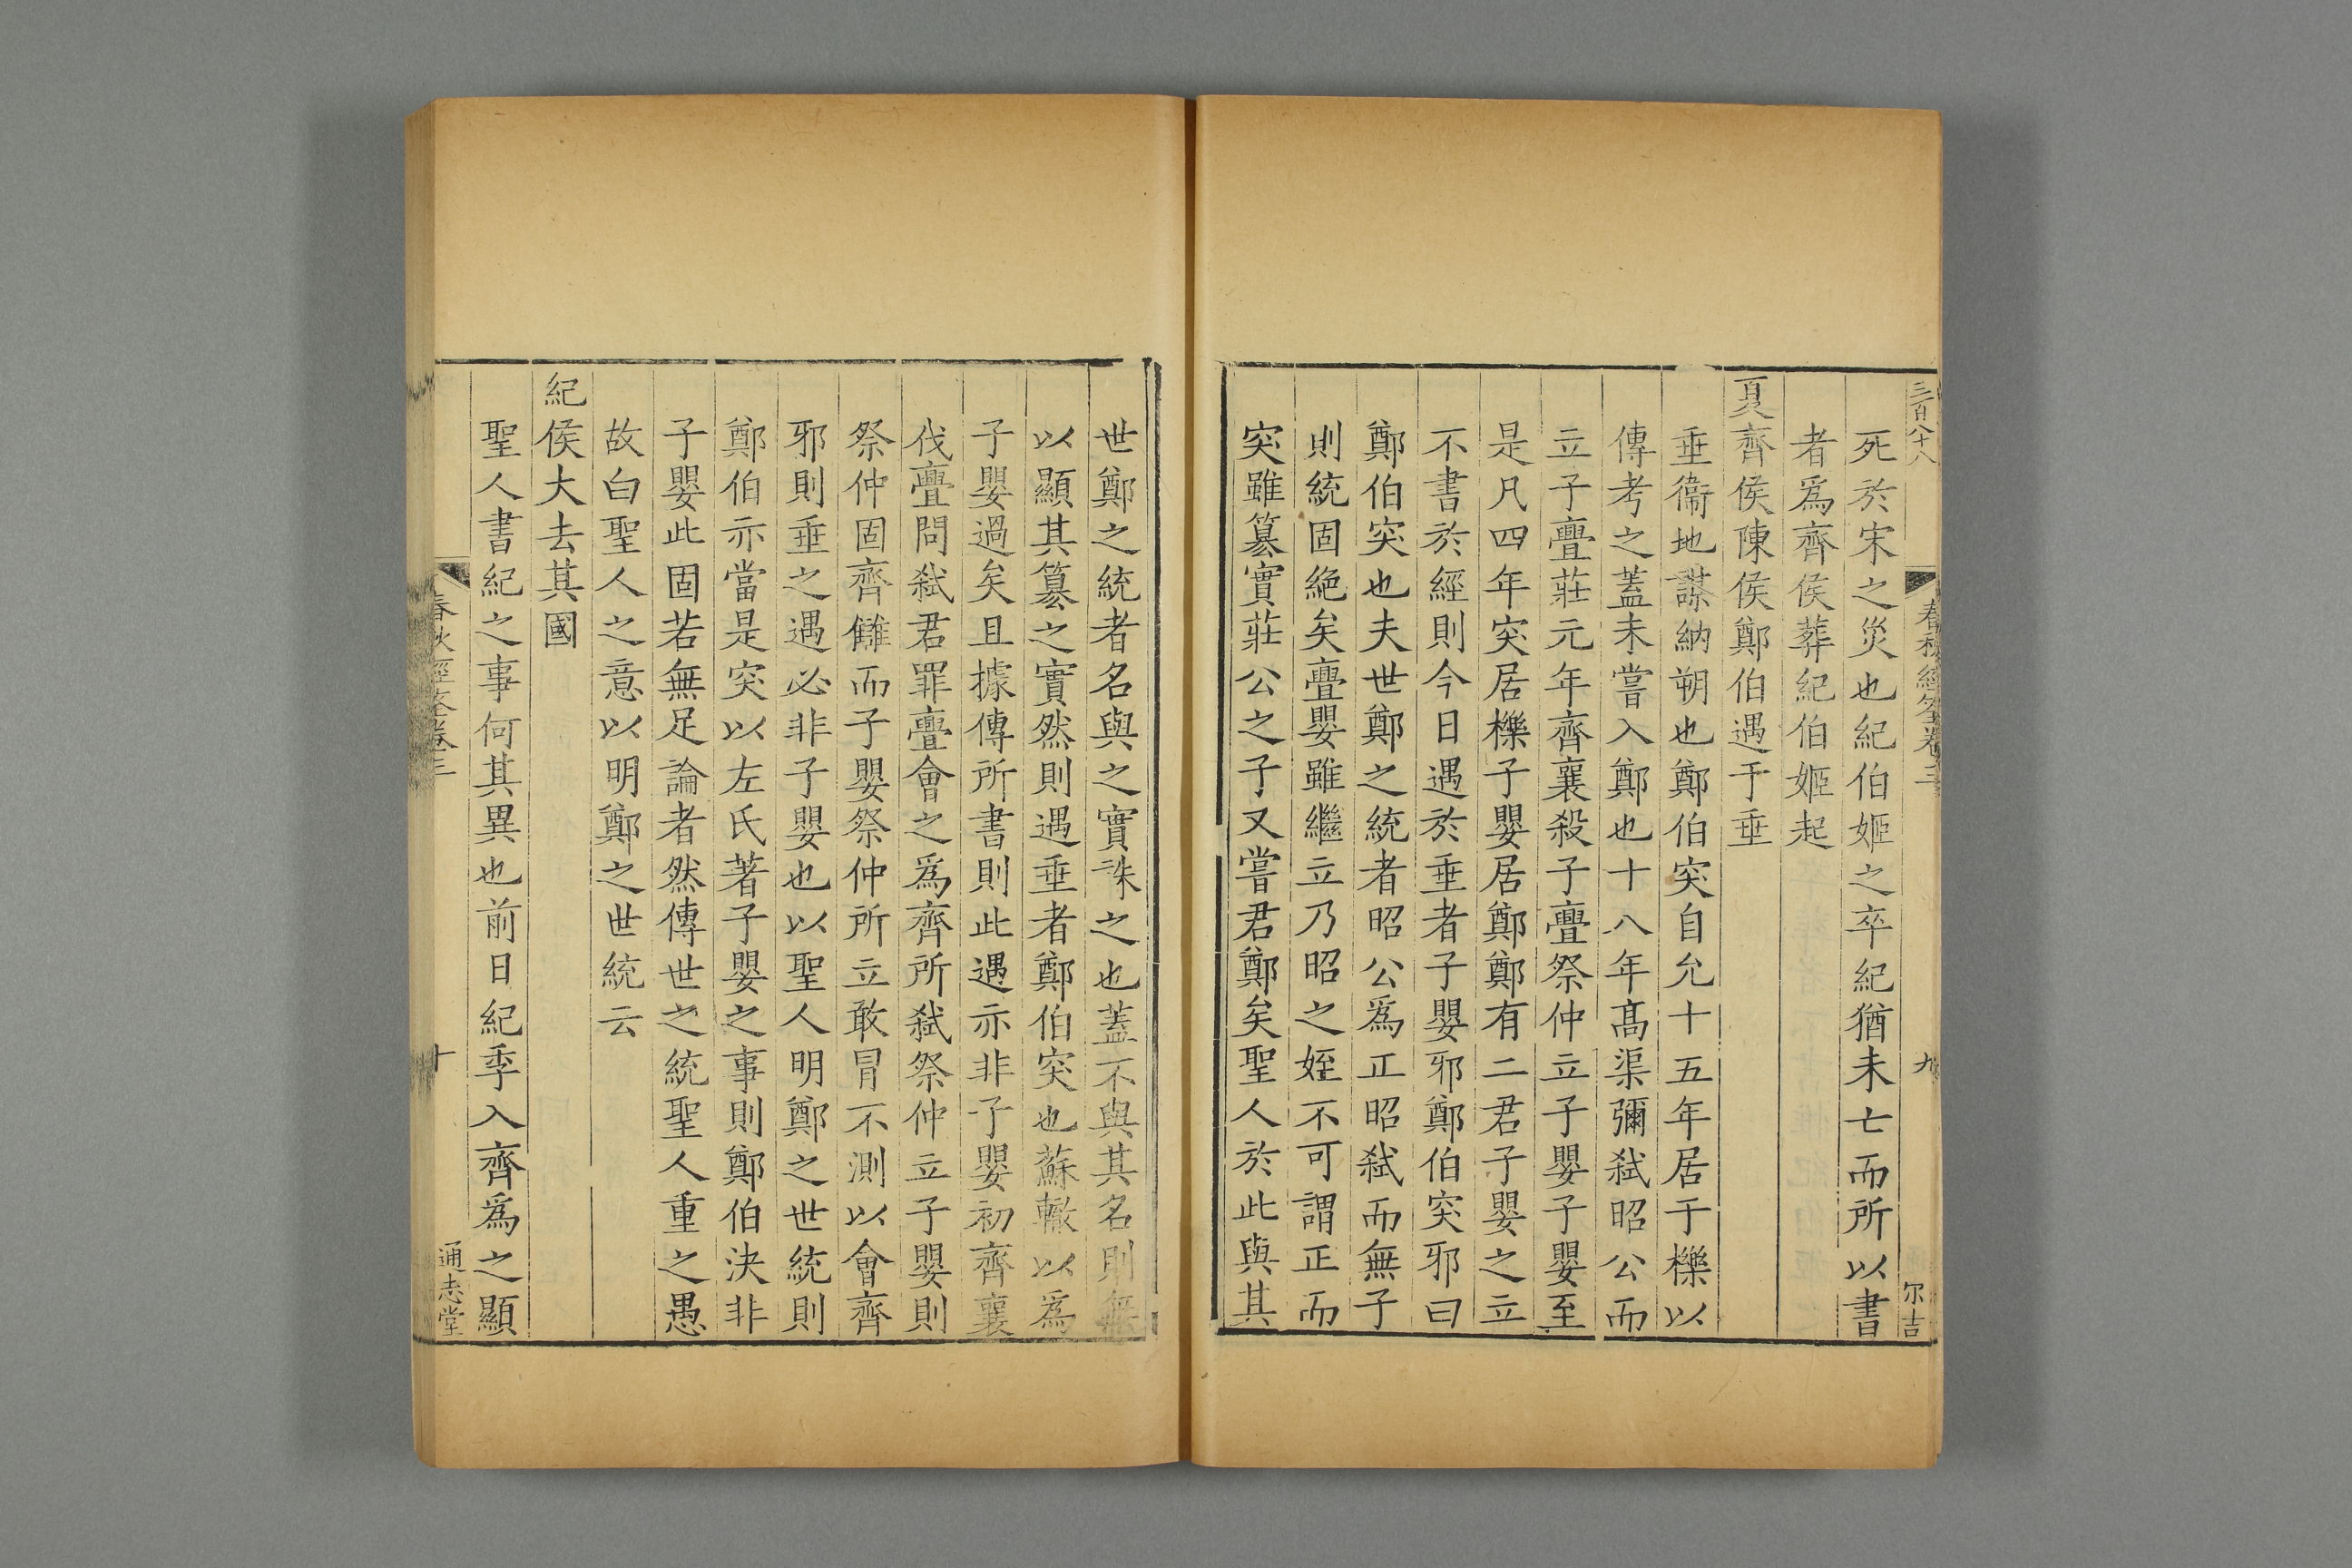 三百八十八
春秋經筌卷三
九
尔吉
死於宋之災也紀伯姬之卒紀猶未亡而所以書
者爲齊侯葬紀伯姬起
夏齊侯陳侯鄭伯遇于垂
垂衞地謀納朔也鄭伯突自允十五年居于櫟以
傳考之蓋未嘗入鄭也十八年高渠彌弑昭公而
立子亹莊元年齊襄殺子亹祭仲立子嬰子嬰至
是凡四年突居櫟子嬰居鄭鄭有二君子嬰之立
不書於經則今日遇於垂者子嬰邪鄭伯突邪曰
鄭伯突也夫世鄭之統者昭公爲正昭弑而無子
則統固絶矣亹嬰雖繼立乃昭之姪不可謂正而
突雖篡實莊公之子又嘗君鄭矣聖人於此與其
世鄭之統者名與之實誅之也蓋不與其名則無
以顯其篡之實然則遇垂者鄭伯突也蘇轍以爲
子嬰過矣且據傳所書則此遇亦非子嬰初齊襄
伐亹問弑君罪亹會之爲齊所弑祭仲立子嬰則
祭仲固齊讎而子嬰祭仲所立敢冒不測以會齊
邪則垂之遇必非子嬰也以聖人明鄭之世統則
鄭伯亦當是突以左氏著子嬰之事則鄭伯決非
子嬰此固若無足論者然傳世之統聖人重之愚
故白聖人之意以明鄭之世統云
紀侯大去其國
聖人書紀之事何其異也前日紀季入齊爲之顯
春秋經筌卷三
十
通志堂